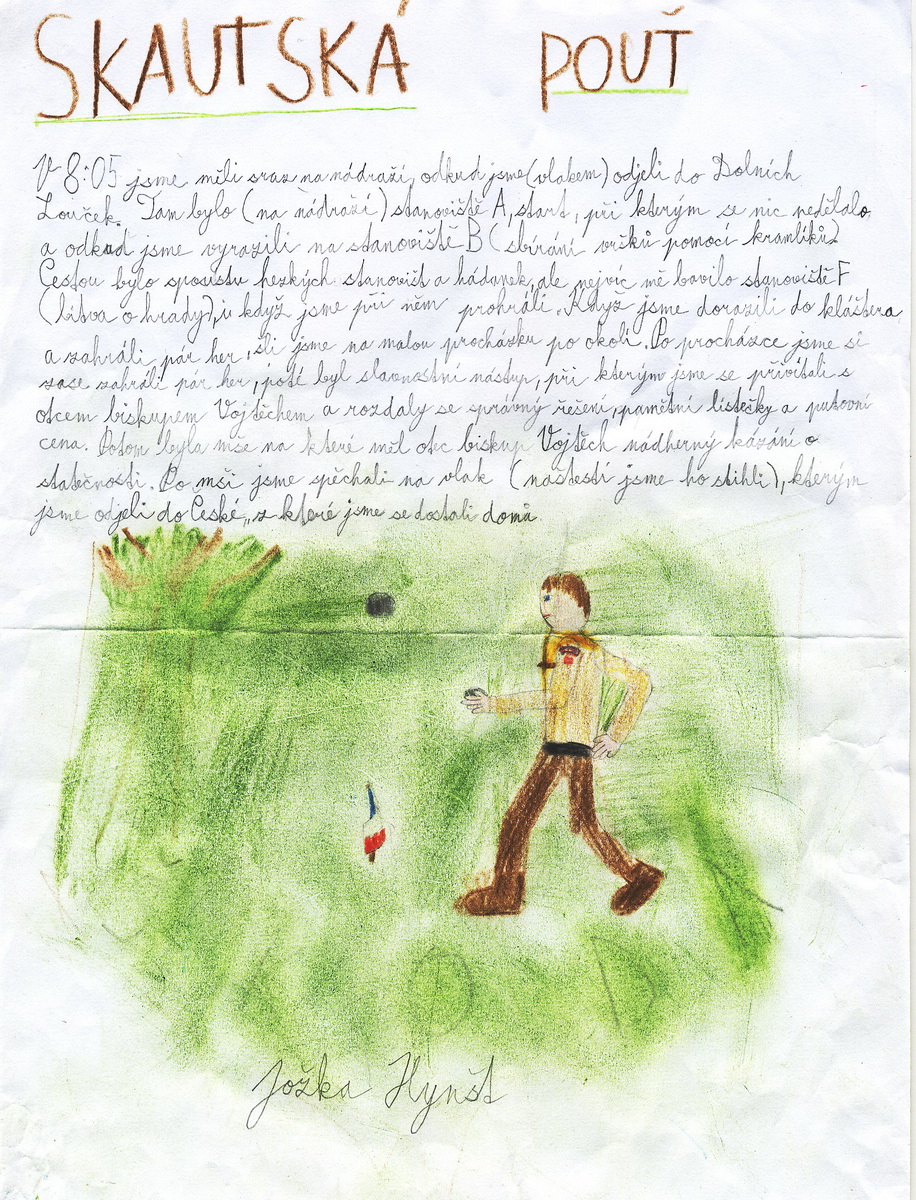 SKAUTSKÁ POUŤ
V 8:05 jsme měli sraz na nádraží, odkud jsme (vlakem) odjeli do Dolních
Louček. Tam bylo (na nádraží) stanoviště A, start, při kterým se nic nedělalo,
a odkud jsme vyrazili na stanoviště B (sbírání vršků pomocí kramlíků).
Cestou bylo spoustu hezkých stanovišť a hádanek, ale nejvíc mě bavilo stanoviště F
(bitva o hrady), i když jsme při něm prohráli. Když jsme dorazili do kláštera
a zahráli pár her, šli jsme na malou procházku po okolí. Po procházce jsme si
zase zahráli pár her, poté byl slavnostní nástup, při kterým jsme se přivítali s
otcem biskupem Vojtěchem a rozdaly se správný řešení, pamětní lístečky a putovní
cena. Potom byla mše na které měl otec biskup Vojtěch nádherný kázání o
statečnosti. Po mši jsme spěchali na vlak (naštestí jsme ho stihli), kterým
jsme odjeli do České, z které jsme se dostali domů.
Jožka Hynšt